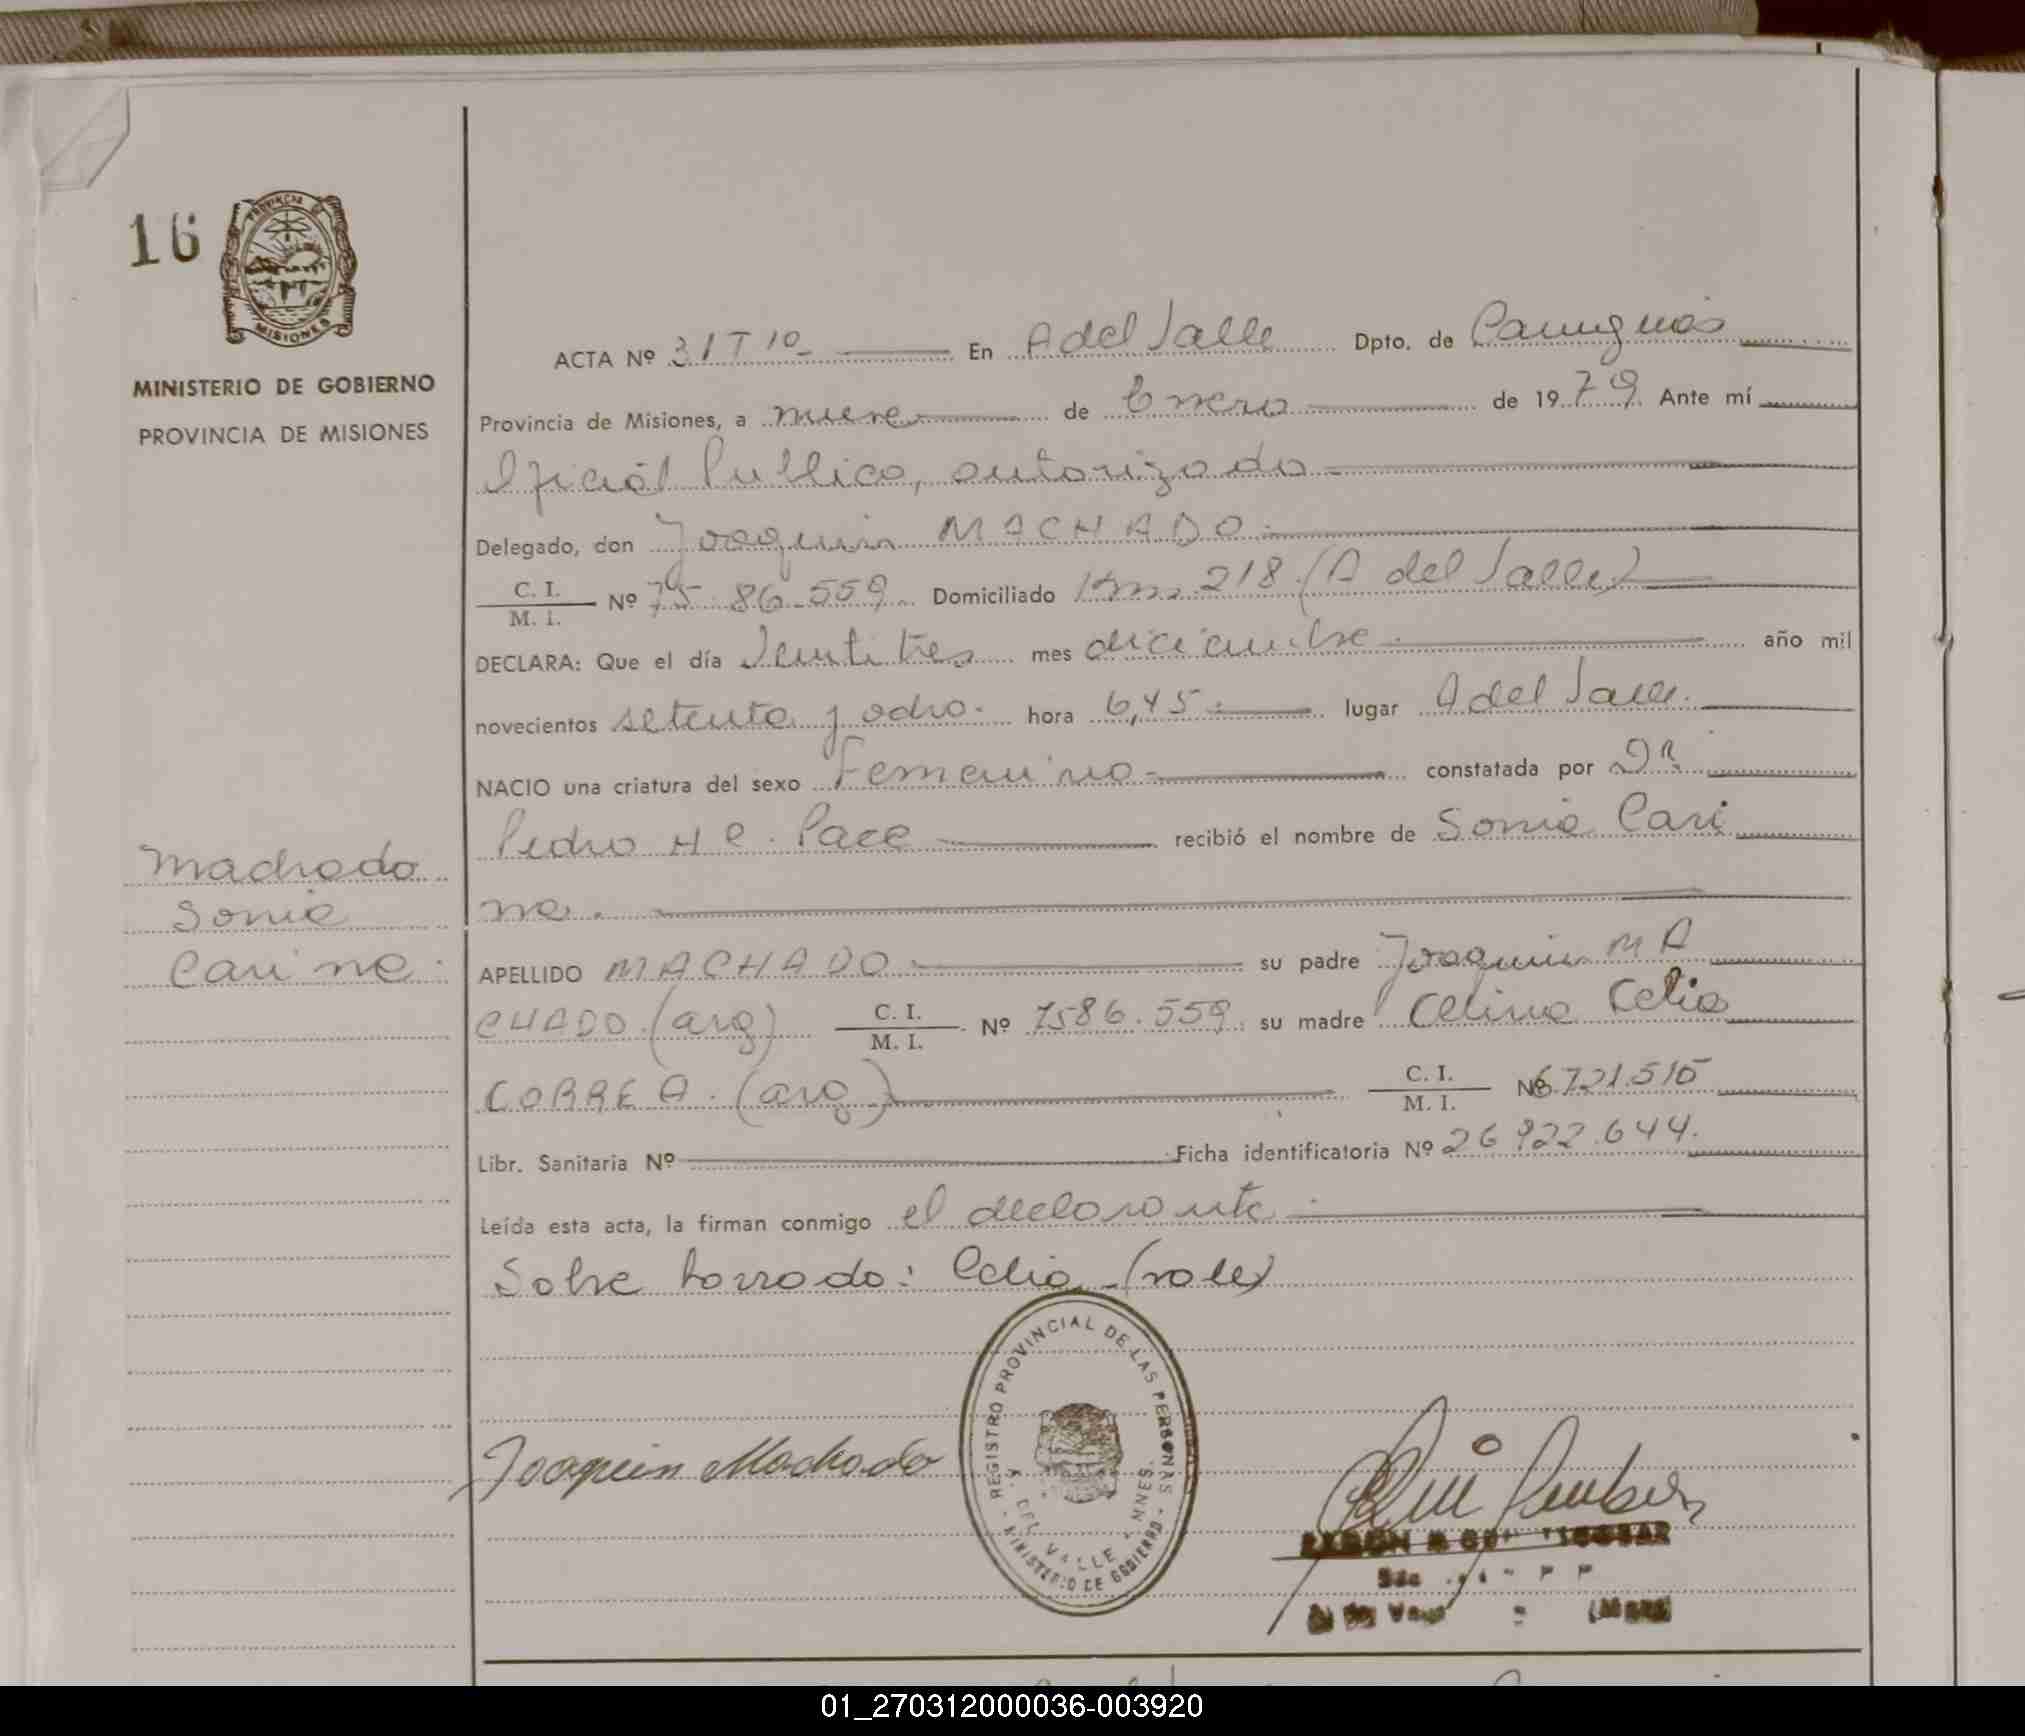 16
PROVINCIA DE
MISIONES
MINISTERIO DE GOBIERNO
PROVINCIA DE MISIONES
ACTA Nº 31 Tº 1º En A del Valle Dpto. de Cainguás
Provincia de Misiones, a nueve de Enero de 1979 Ante mí
Oficial Publico, autorizado
Delegado, don Joaquin MACHADO
C. I. / M. I. Nº 75 86.559 Domiciliado Km. 218 (A del Valle)
DECLARA: Que el día Veintitres mes diciembre año mil
novecientos setenta y ocho. hora 6,45 lugar A del Valle.
NACIO una criatura del sexo Femenino constatada por DR
Pedro H C. Pace recibió el nombre de Sonia Cari
na.
Machado
Sonia
Carina
APELLIDO MACHADO su padre Joaquin MA
CHADO (arg) C. I. / M. I. Nº 7586.559 su madre Celina Celia
CORREA. (arg) C. I. / M. I. Nº 6.721.515
Libr. Sanitaria Nº Ficha identificatoria Nº 26 922.644.
Leída esta acta, la firman conmigo el declarante
Sobre borrado: Celia (vale)
REGISTRO PROVINCIAL DE LAS PERSONAS - MINISTERIO DE GOBIERNO -
A. DEL VALLE - MNES.
Joaquin Machado
01_270312000036-003920